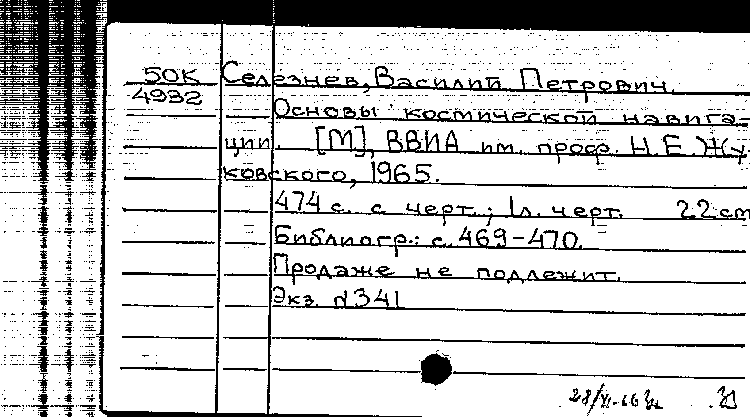 50К Селезнев, Василий Петрович.
4932
Основы космической навига-
ции. [М], ВВИА им. проф. Н.Е.Жу-
ковского, 1965.
474 с. с черт.; 1 л. черт. 22 см
Библиогр.: с. 469-470.
Продаже не подлежит.
Экз. №341